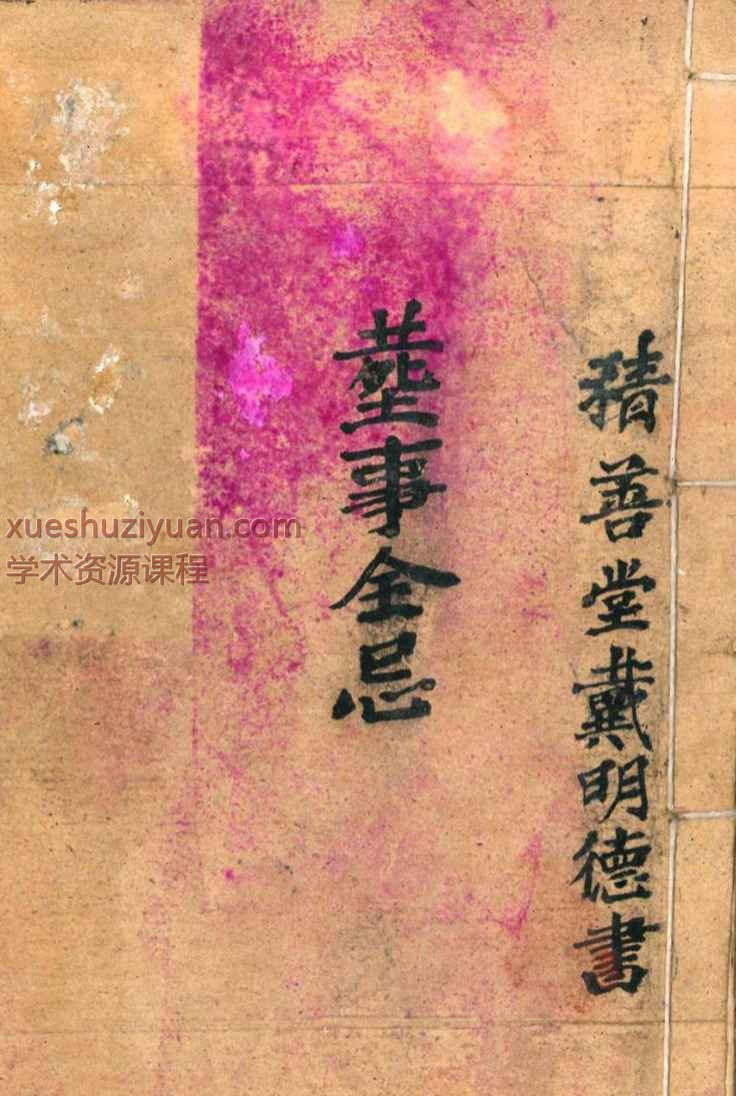 積善堂戴明德書
塟事全忌
xueshuziyuan.com
学术资源课程